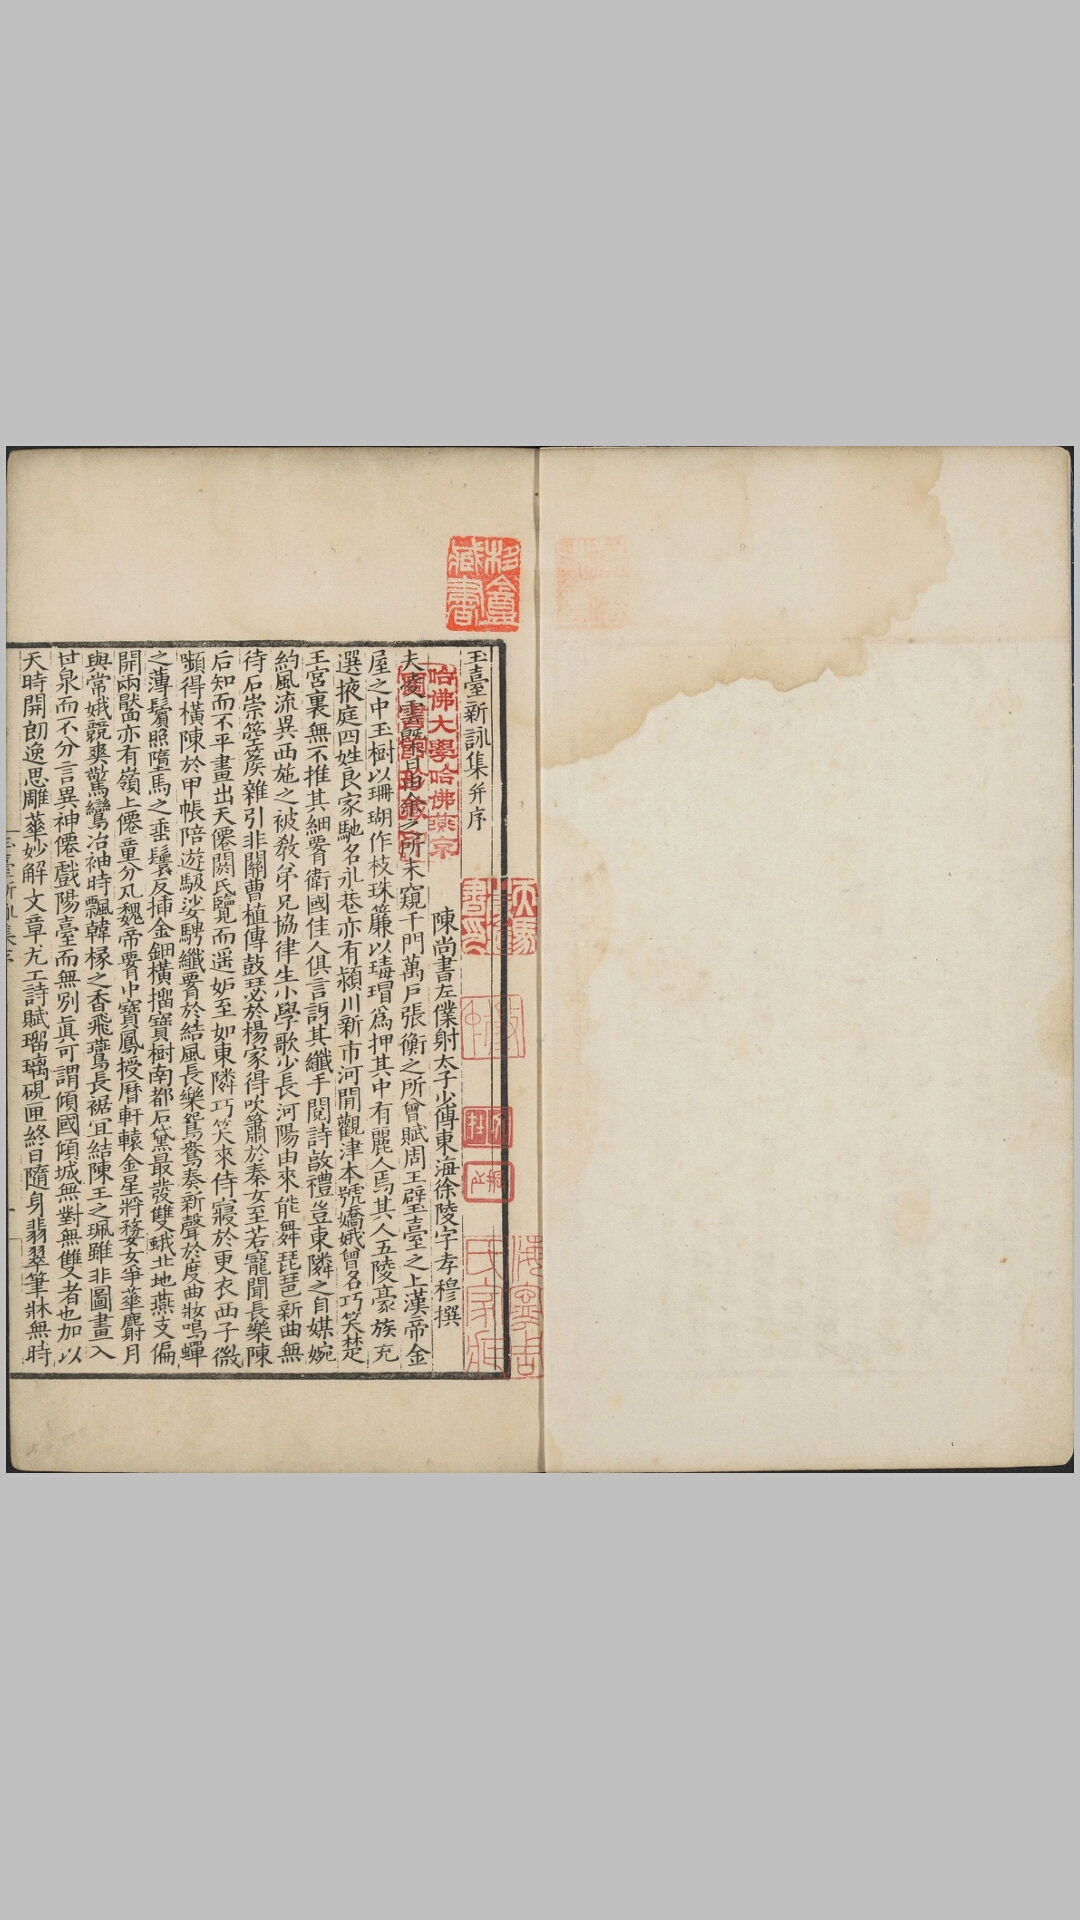 玉臺新詠集并序
陳尚書左僕射太子少傅東海徐陵字孝穆撰
夫凌雲槩日由余之所未窺千門萬戶張衡之所曾賦周王璧臺之上漢帝金
屋之中玉樹以珊瑚作枝珠簾以瑇瑁爲押其中有麗人焉其人五陵豪族充
選掖庭四姓良家馳名永巷亦有潁川新市河閒觀津本號嬌娥曾名巧笑楚
王宮裏無不推其細腰衛國佳人俱言訝其纖手閱詩敦禮豈東隣之自媒婉
約風流異西施之被敎弟兄協律生小學歌少長河陽由來能舞琵琶新曲無
待石崇箜篌雜引非關曹植傳鼓瑟於楊家得吹簫於秦女至若寵聞長樂陳
后知而不平畫出天僊閼氏覽而遥妬至如東隣巧笑來侍寢於更衣西子微
嚬得橫陳於甲帳陪遊馺娑騁纖腰於結風長樂鴛鴦奏新聲於度曲妝鳴蟬
之薄鬢照墮馬之垂鬟反揷金鈿橫攂寶樹南都石黛最發雙蛾北地燕支偏
開兩靨亦有嶺上僊童分凡魏帝腰中寶鳳授曆軒轅金星將婺女爭華麝月
與常娥競爽驚鸞冶袖時飄韓掾之香飛鷰長裾宜結陳王之珮雖非圖畫入
甘泉而不分言異神僊戲陽臺而無別眞可謂傾國傾城無對無雙者也加以
天時開朗逸思雕華妙解文章尤工詩賦瑠璃硯匣終日隨身翡翠筆牀無時
移盦藏書
哈佛大學哈佛燕京圖書館珍藏印